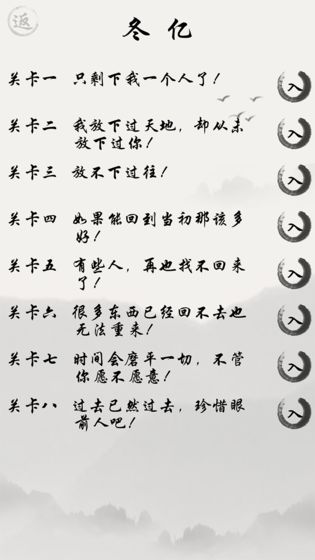 返
冬 亿
关卡一 只剩下我一个人了！
入
关卡二 我放下过天地，却从未
放下过你！
入
关卡三 放不下过往！
入
关卡四 如果能回到当初那该多
好！
入
关卡五 有些人，再也找不回来
了！
入
关卡六 很多东西已经回不去也
无法重来！
入
关卡七 时间会磨平一切，不管
你愿不愿意！
入
关卡八 过去已然过去，珍惜眼
前人吧！
入